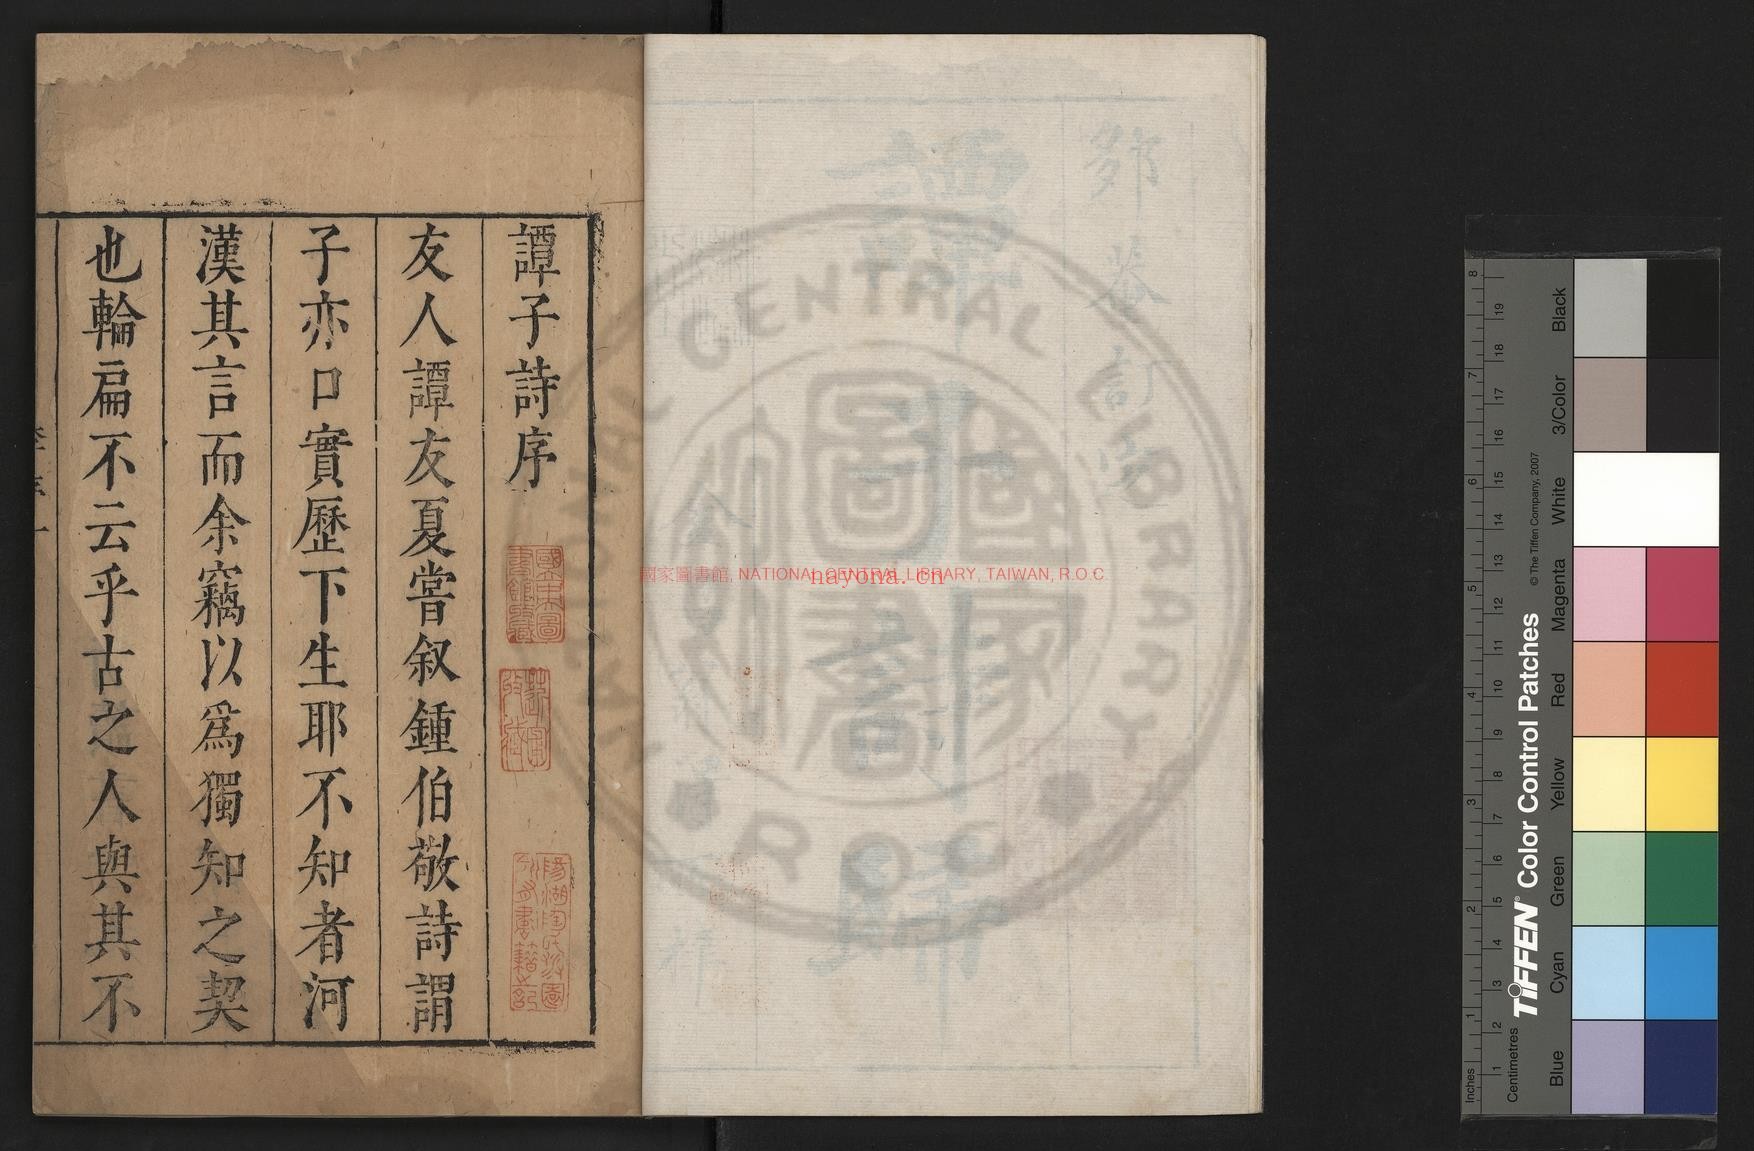 譚子詩序
友人譚友夏嘗叙鍾伯敬詩謂
子亦口實歷下生耶不知者河
漢其言而余竊以爲獨知之契
也輪扁不云乎古之人與其不
國家圖書館, NATIONAL CENTRAL LIBRARY, TAIWAN, R.O.C
nayona.cn
CENTRAL LIBRARY
R.O.C
國家圖書
Inches
Centimetres
TIFFEN® Color Control Patches
© The Tiffen Company, 2007
Blue
Cyan
Green
Yellow
Red
Magenta
White
3/Color
Black
1
2
3
4
5
6
7
8
1
2
3
4
5
6
7
8
9
10
11
12
13
14
15
16
17
18
19